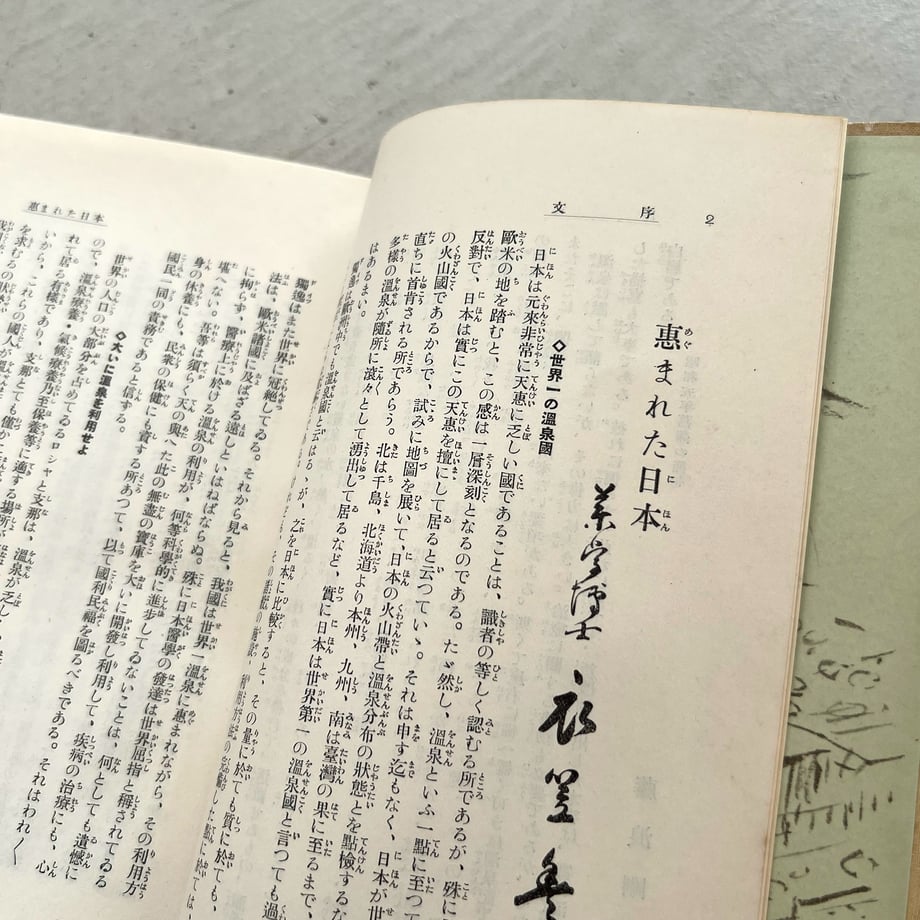 序文 2
惠まれた日本
薬学博士 衣笠
◇世界一の溫泉國
日本は元來非常に天惠に乏しい國であることは、識者の等しく認むる所であるが、殊に
歐米の地を踏むと、この感は一層深刻となるのである。たゞ然し、溫泉といふ一點に至つて
反對で、日本は實にこの天惠を擅にして居ると云つていゝ。それは申す迄もなく、日本が世
の火山國であるからで、試みに地圖を展いて、日本の火山帶と溫泉分布の狀態とを點檢するな
直ちに首肯される所であらう。北は千島、北海道より本州、九州、南は臺灣の果に至るまで、
多樣の溫泉が隨所に滾々として湧出して居るなど、實に日本は世界第一の溫泉國と言つても過
はあるまい。
獨逸は歐洲中でも溫泉國と云はるゝが、之を日本に比較すると、その量に於ても質に於ても、
惠まれた日本
獨逸はまた世界に冠絕してゐる。それから見ると、我國は世界一溫泉に惠まれながら、その利用方
法は、歐米諸國に及ばざる遠しといはねばならぬ。殊に日本醫學の發達は世界屈指と稱されてゐる
に拘らず、醫療上に於ける溫泉の利用が、何等科學的に進步してゐないことは、何としても遺憾に
堪へない。吾等は須らく天の與へた此の無盡の寶庫を大いに開發し利用して、疾病の治療にも、心
身の休養にも、民衆の保健にも資する所あつて、以て國利民福を圖るべきである。それはわれ〱
國民一同の責務であると信ずる。
◇大いに溫泉を利用せよ
世界の人口の大部分を占めてゐるロシヤと支那は、溫泉が乏しく
ので、溫泉療養・氣候療養乃至保養等に適する場所
れて居る有樣であり、支那とても僅か
いから、これらの國人が
を求むるの狀